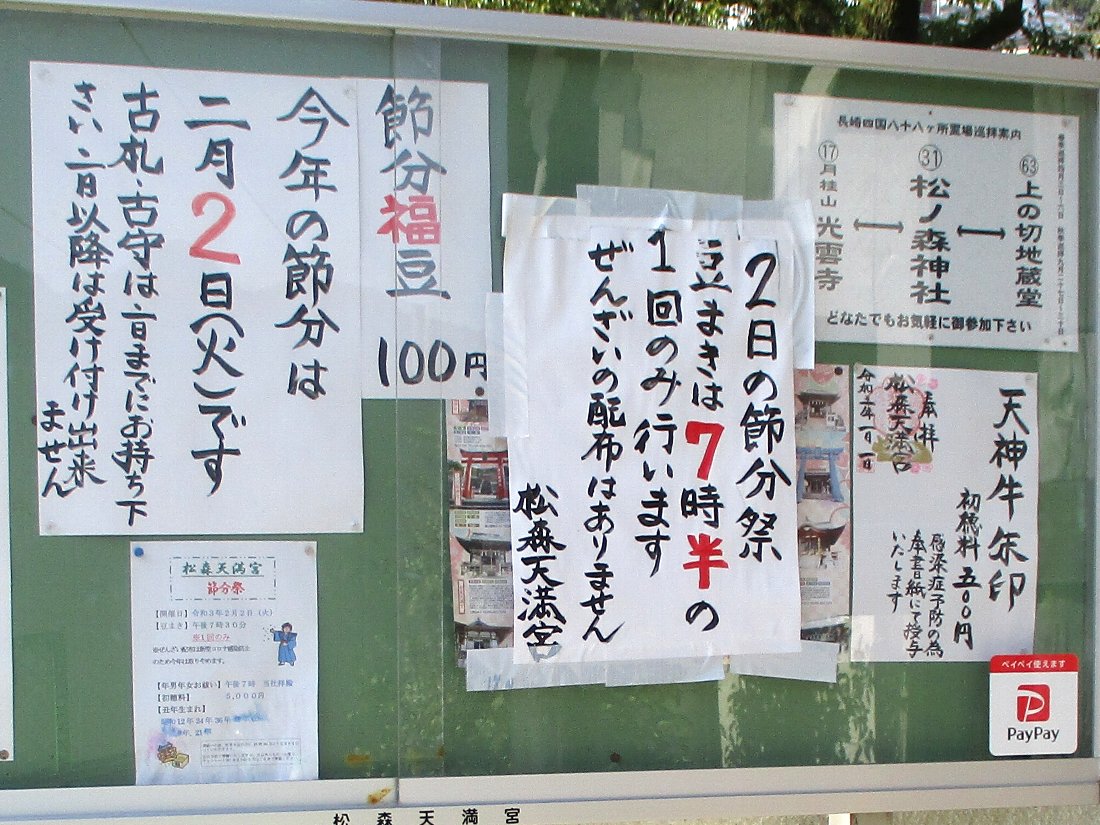 節分福豆
100円
今年の節分は
二月2日(火)です
古札・古守は二日までにお持ち下
さい 二日以降は受け付け出来
ません
2日の節分祭
豆まきは7時半の
1回のみ行います
ぜんざいの配布はありません
松森天満宮
長崎四国八十八ヶ所霊場巡拝案内
63 上の切地蔵堂
31 松ノ森神社
17 月桂山 光雲寺
どなたでもお気軽に御参加下さい
天神牛朱印
初穂料 五00円
感染症予防の為
奉書紙にて授与
いたします
奉拝
松森天満宮
松森天満宮
節分祭
【開催日】令和3年2月2日(火)
【豆まき】午後7時30分
※1回のみ
のため今年は取りやめます。
【年男年女お祓い】午後7時 当社拝殿
【初穂料】 5,000円
【丑年生まれ】
ペイペイ使えます
PayPay
松森天満宮